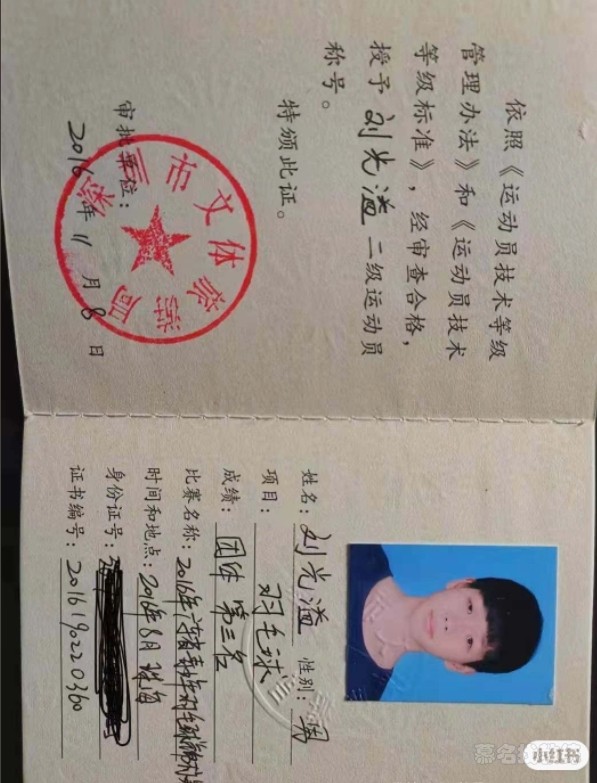 依照《运动员技术等级
管理办法》和《运动员技术
等级标准》，经审查合格，
授予 刘光溢 二级运动员
称号。
特颁此证。
审批单位：
市文体旅游局
2016年11月8日
姓名：刘光溢 性别：男
项目：羽毛球
成绩：团体 第三名
比赛名称：2016年 羽毛球
时间和地点：2016年8月 珠海
身份证号：
证书编号：
小红书